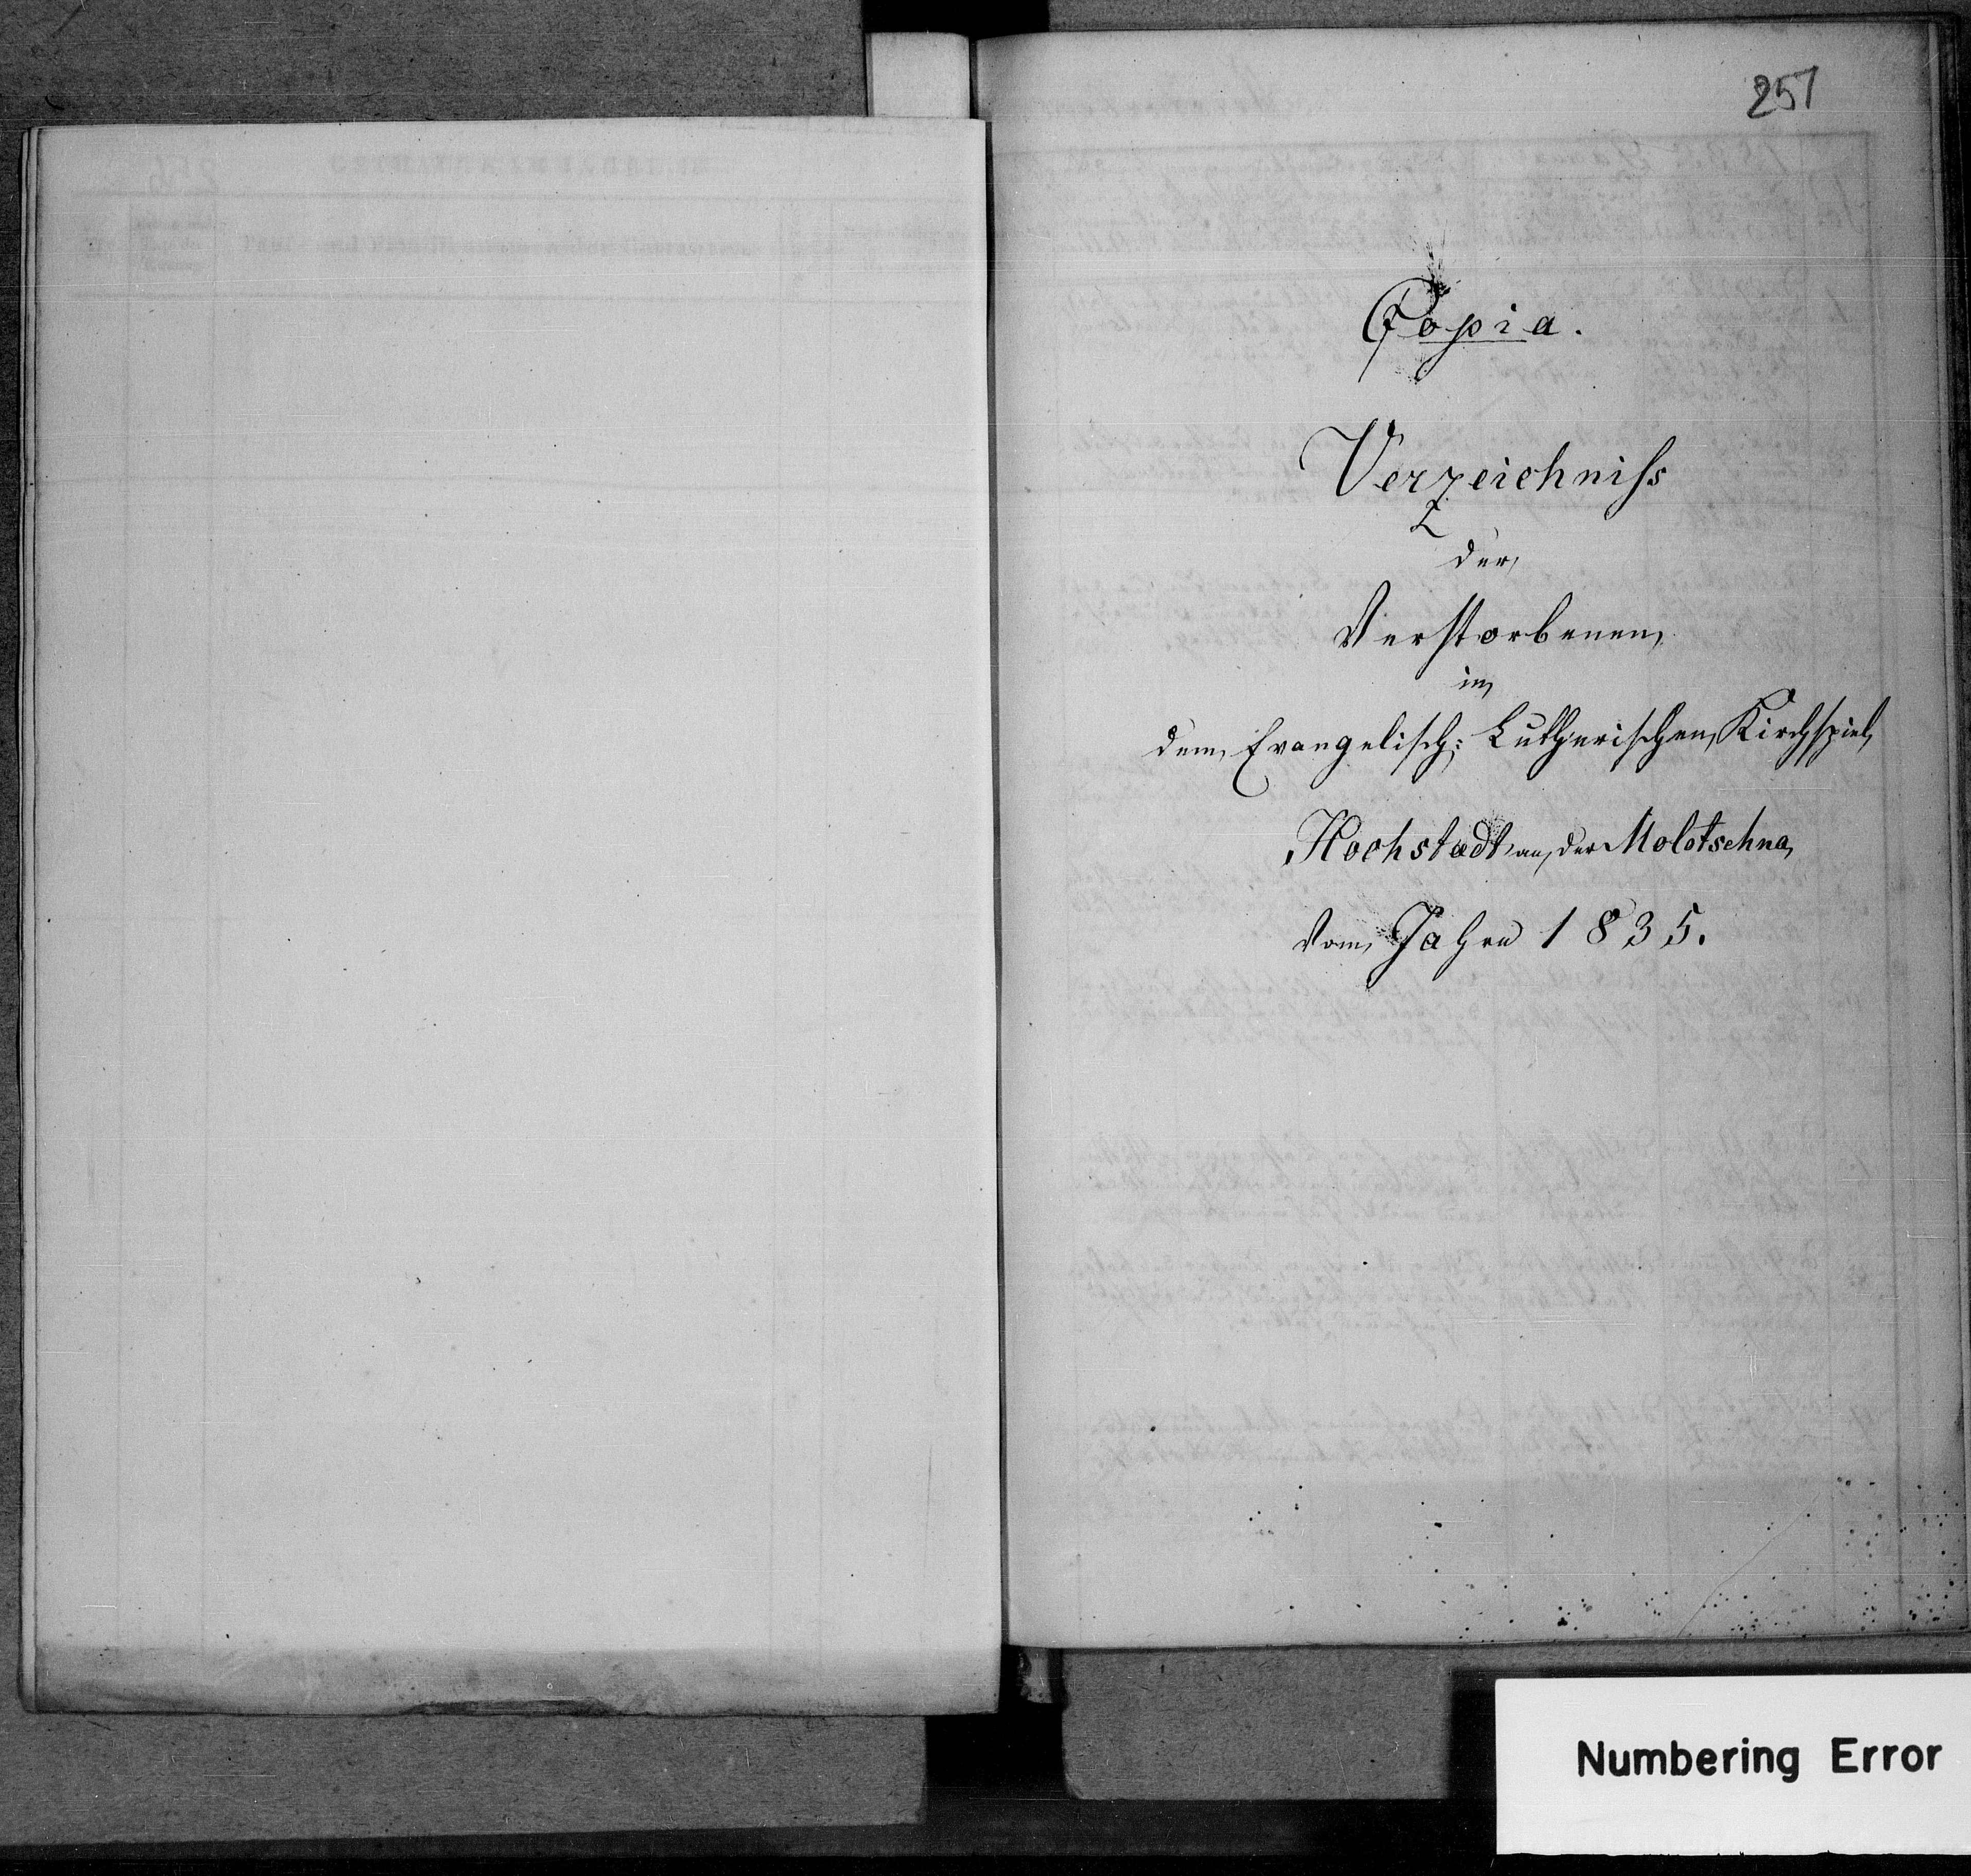 257
Copia.
Verzeichniſs
der
Verstorbenen
in
dem Evangelisch: Lutherischen Kirchspiel
Hochstadt an der Molotschna
Vom Jahre 1835.
Numbering Error